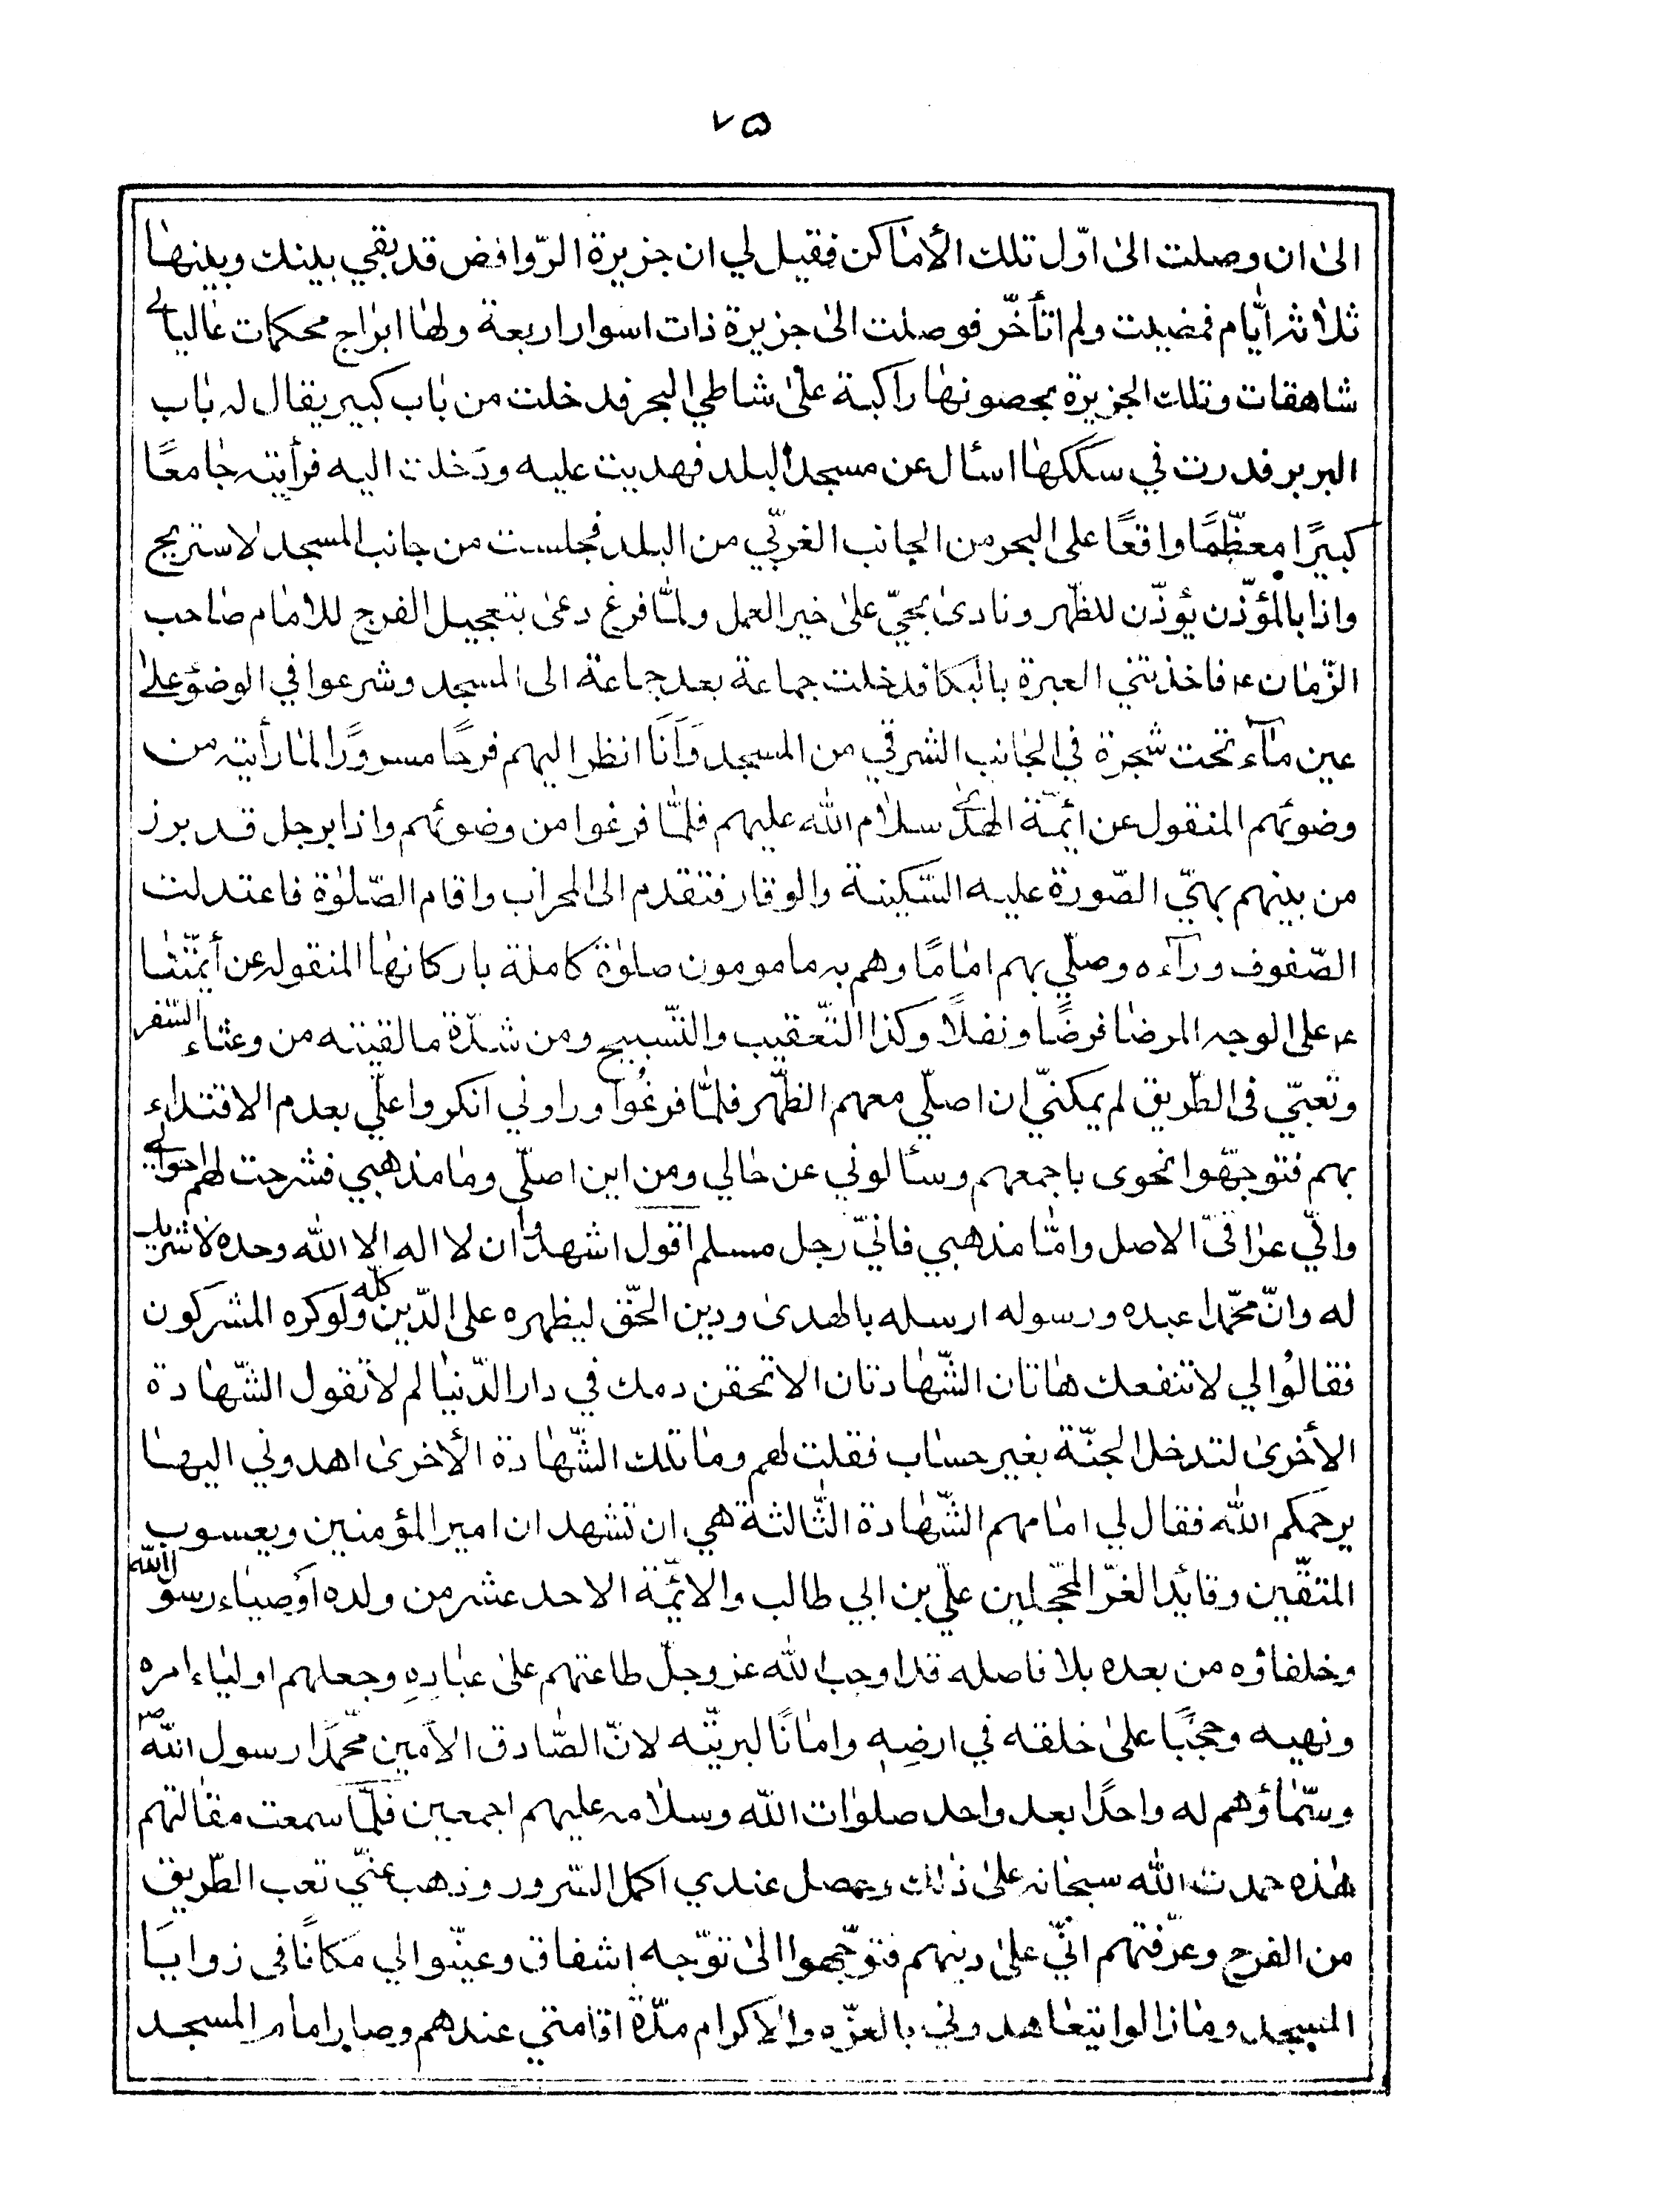 ٧٥
الىٰ ان وصلت الىٰ اوّل تلك الأماكن فقيل لي ان جزيرة الرّوافض قد بقي بينك وبينها
ثلاثة ايّام فمضيت ولم اتأخّر فوصلت الىٰ جزيرة ذات اسوار اربعة ولها ابراج محكمات عاليات
شاهقات وتلك الجزيرة بحصونها راكبة علىٰ شاطي البحر فدخلت من باب كبير يقال له باب
البربر فدرت في سككها اسأل عن مسجد البلد فهديت عليه ودخلت اليه فرأيته جامعًا
كبيرًا معظّمًا واقعًا على البحر من الجانب الغربّي من البلد فجلست من جانب المسجد لاستريح
واذا بالمؤذّن يؤذّن للظّهر ونادىٰ بحيّ علىٰ خير العمل ولمّا فرغ دعىٰ بتعجيل الفرج للامام صاحب
الزّمان ع فاخذتني العبرة بالبكا فدخلت جماعة بعد جماعة الى المسجد وشرعوا في الوضوء علىٰ
عين مآء تحت شجرة في الجانب الشرقي من المسجد وَاَنَا انظر اليهم فرحًا مسرورًا لما رأيته من
وضوئهم المنقول عن ائمّة الهدىٰ سلام الله عليهم فلمّا فرغوا من وضوئهم واذا برجل قد برز
من بينهم بهيّ الصّورة عليه السّكينة والوقار فتقدم الى المحراب واقام الصّلوٰة فاعتدلت
الصّفوف ورآءه وصلّي بهم امامًا وهم به مامومون صلوٰة كاملة باركانها المنقوله عن أئمّتنا
ع على الوجه المرضا فرضًا ونفلًا وكذا التّعقيب والتّسبيح ومن شدّة ما لقيته من وعثاء السّفر
وتعبّي فى الطّريق لم يمكنّي ان اصلّي معهم الظّهر فلمّا فرغوا وراوني انكروا علّي بعدم الاقتداء
بهم فتوجّهوا نحوى باجمعهم وسألوني عن حالي ومن اين اصلّي وما مذهبي فشرحت لهم احوالي
وانّي عراقىّ الاصل وامّا مذهبي فانّي رجل مسلم اقول اشهد ان لا اله الا الله وحده لا شريك
له وانّ محمّدا عبده ورسوله ارسله بالهدىٰ ودين الحّق ليظهره على الدّين كلّه ولوكره المشركون
فقالُوا لي لا تنفعك هاتان الشّهادتان الا تحقن دمك في دار الدّنيا لم لا تقول الشّهادة
الأخرىٰ لتدخل الجنّة بغير حساب فقلت لهم وما تلك الشّهادة الأخرىٰ اهدوني اليها
يرحمكم الله فقال لي امامهم الشّهادة الثّالثة هي ان تشهد ان امير المؤمنين ويعسوب
المتقّين وقائد الغرّ المحجّلين علّي بن ابي طالب والائمّة الاحد عشر من ولده اوصياء رسول الله
وخلفاؤه من بعده بلا فاصله قد اوجب الله عز وجلّ طاعتهم علىٰ عبادِهِ وجعلهم اولياء امره
ونهيه وحججًا علىٰ خلقه في ارضِهِ وامانًا لبريّته لانّ الصّادق الأمين محمّدًا رسول الله ص
وسّماؤهم له واحدًا بعد واحد صلوات الله وسلامه عليهم اجمعين فلمّا سمعت مقالتهم
هذه حمدت الله سبحانه علىٰ ذلك وحصل عندي اكمل السّرور وذهب عنّي تعب الطّريق
من الفرح وعرّفتهم انّي علىٰ دينهم فتوجّهوا الىٰ توّجه اشفاق وعيّنوا لي مكانًا فى زوايا
المسجد وما زالوا يتعاهدوني بالعزّه والاكرام مدّة اقامتي عندهم وصار امام المسجد